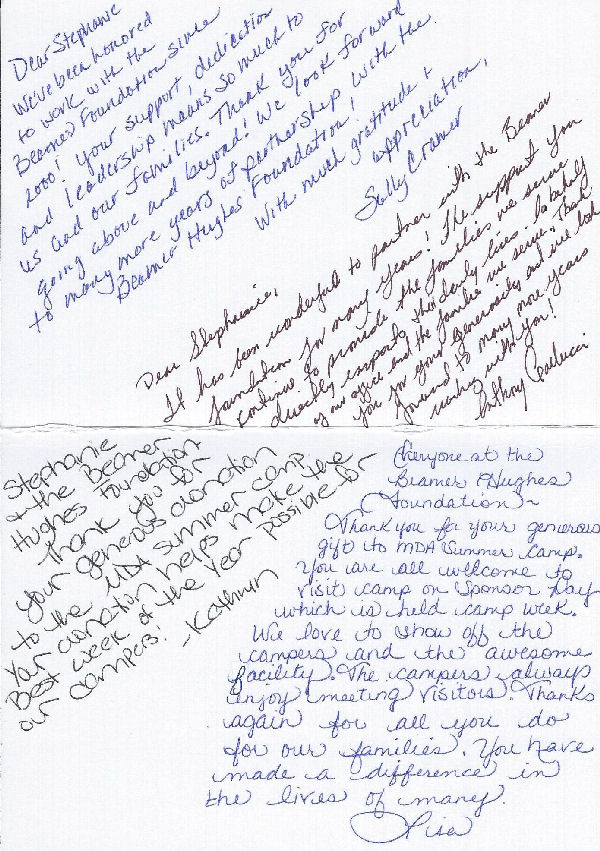 Dear Stephanie
We've been honored
to work with the
Beamer Foundation since
2000! Your support, dedication
and leadership means so much to
us and our families. Thank you for
going above and beyond! We look forward
to many more years of partnership with the
Beamer Hughes Foundation!
With much gratitude +
appreciation,
Sally Cramer
Dear Stephanie,
It has been wonderful to partner with the Beamer
foundation for many years! The support you
continue to provide the families we serve
directly impacts their daily lives. To behalf
of our office and the families we serve, Thank
you for your generosity and we look
forward to many more years
working with you!
Anthony
Stephanie
& the Beamer
Hughes Foundation
Thank you for
your generous donation
to the MDA summer camp.
Your donation helps make the
Best week of the Year possible for
our campers!
-Kathryn
Everyone at the
Beamer Hughes
Foundation~
Thank you for your generous
gift to MDA Summer Camp.
You are all welcome to
visit camp on Sponsor Day
which is held camp week.
We love to show off the
campers and the awesome
facility. The campers always
enjoy meeting visitors. Thanks
again for all you do
for our families. You have
made a difference in
the lives of many.
Lisa